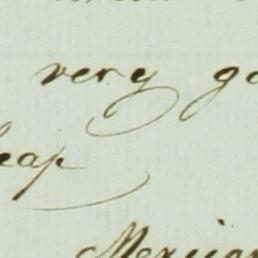 very go
eap
Mexican